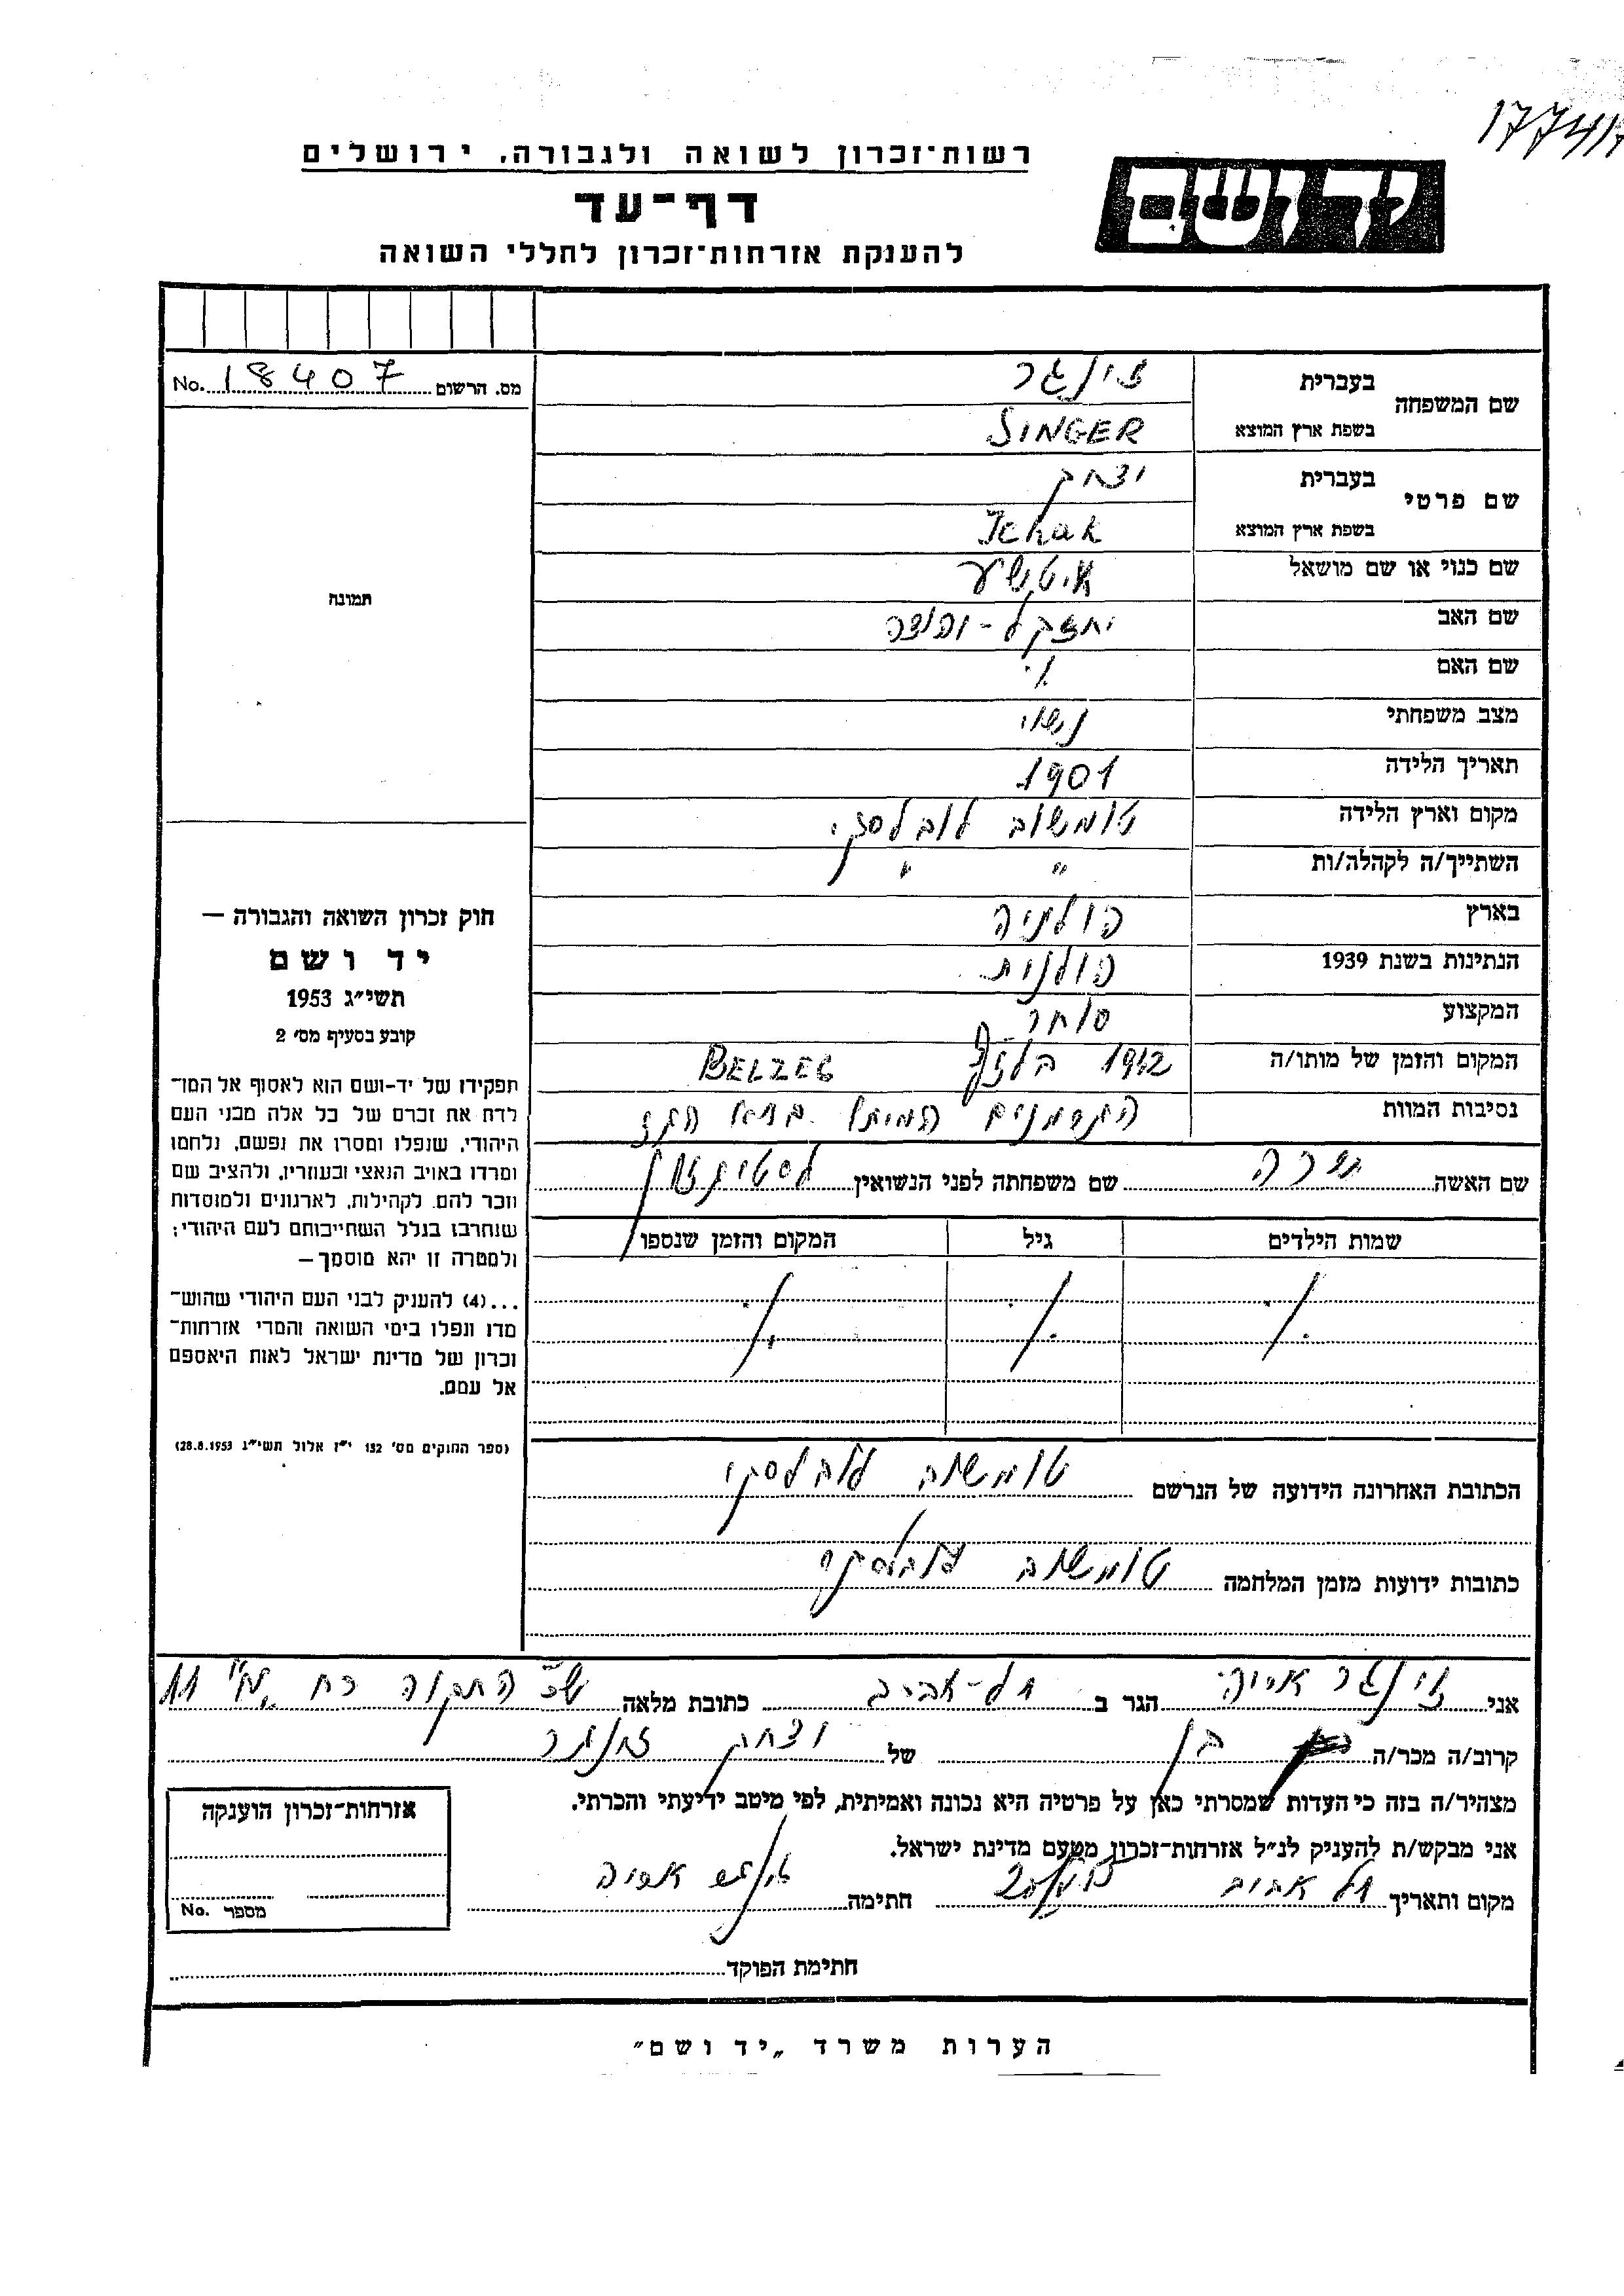 177417
רשות־זכרון לשואה ולגבורה, ירושלים
יד ושם
דף־עד
להענקת אזרחות־זכרון לחללי השואה
מס. הרשום No. 18407
שם המשפחה
בעברית זינגר
בשפת ארץ המוצא SINGER
שם פרטי
בעברית יצחק
בשפת ארץ המוצא Jchak
שם כנוי או שם מושאל איטשע
תמונה
שם האב יחזקל-יהודה
שם האם
מצב משפחתי נשוי
תאריך הלידה 1901
מקום וארץ הלידה טומשוב לובלסקי
השתייך/ה לקהלה/ות " "
בארץ פולניה
הנתינות בשנת 1939 פולנית
המקצוע סוחר
המקום והזמן של מותו/ה 1942 בלזץ BELZEC
נסיבות המוות הגרמנים המיתו בתא הגז
שם האשה שרה שם משפחתה לפני הנשואין
שמות הילדים גיל המקום והזמן שנספו
חוק זכרון השואה והגבורה —
יד ושם
תשי״ג 1953
קובע בסעיף מס׳ 2
תפקידו של יד-ושם הוא לאסוף אל המו־
לדת את זכרם של כל אלה מבני העם
היהודי, שנפלו ומסרו את נפשם, נלחמו
ומרדו באויב הנאצי ובעוזריו, ולהציב שם
וזכר להם, לקהילות, לארגונים ולמוסדות
שנחרבו בגלל השתייכותם לעם היהודי;
ולמטרה זו יהא מוסמך —
...(4) להעניק לבני העם היהודי שהוש־
מדו ונפלו בימי השואה והמרי אזרחות־
זכרון של מדינת ישראל לאות היאספם
אל עמם.
(ספר החוקים מס׳ 132 י״ז אלול תשי״ג 28.8.1953)
הכתובת האחרונה הידועה של הנרשם טומשוב לובלסקי
כתובות ידועות מזמן המלחמה טומשוב לובלסקי
אני זינגר אריה הגר ב תל-אביב כתובת מלאה שכ׳ התקוה רח 11
קרוב/ה מכר/ה בן של יצחק זינגר
מצהיר/ה בזה כי העדות שמסרתי כאן על פרטיה היא נכונה ואמיתית, לפי מיטב ידיעתי והכרתי.
אני מבקש/ת להעניק לנ״ל אזרחות־זכרון מטעם מדינת ישראל.
מקום ותאריך תל אביב חתימה זינגר אריה
חתימת הפוקד
אזרחות־זכרון הוענקה
מספר No.
הערות משרד „יד ושם״